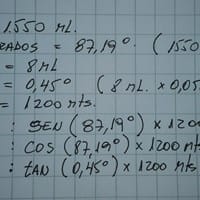 1.550 mL.
RADOS = 87,19° (1550
= 8 mL
= 0,45° (8 mL. x 0,05
= 1200 mts.
: SEN (87,19°) x 120
: COS (87,19°) x 1200 mt
: tAN (0,45°) x 1200 mts